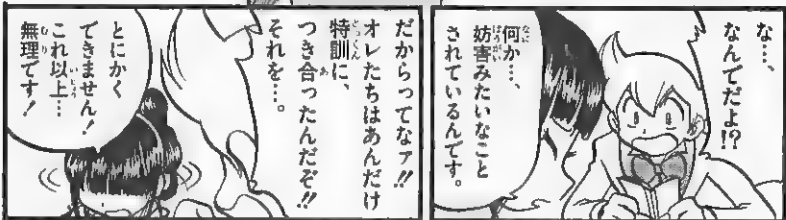 な…、
なんでだよ!?
何か…、
妨害みたいなこと
されているんです。
だからってなァ!!
オレたちはあんだけ
特訓に、
つき合ったんだぞ!!
それを…。
とにかく
できません!
これ以上…
無理です!